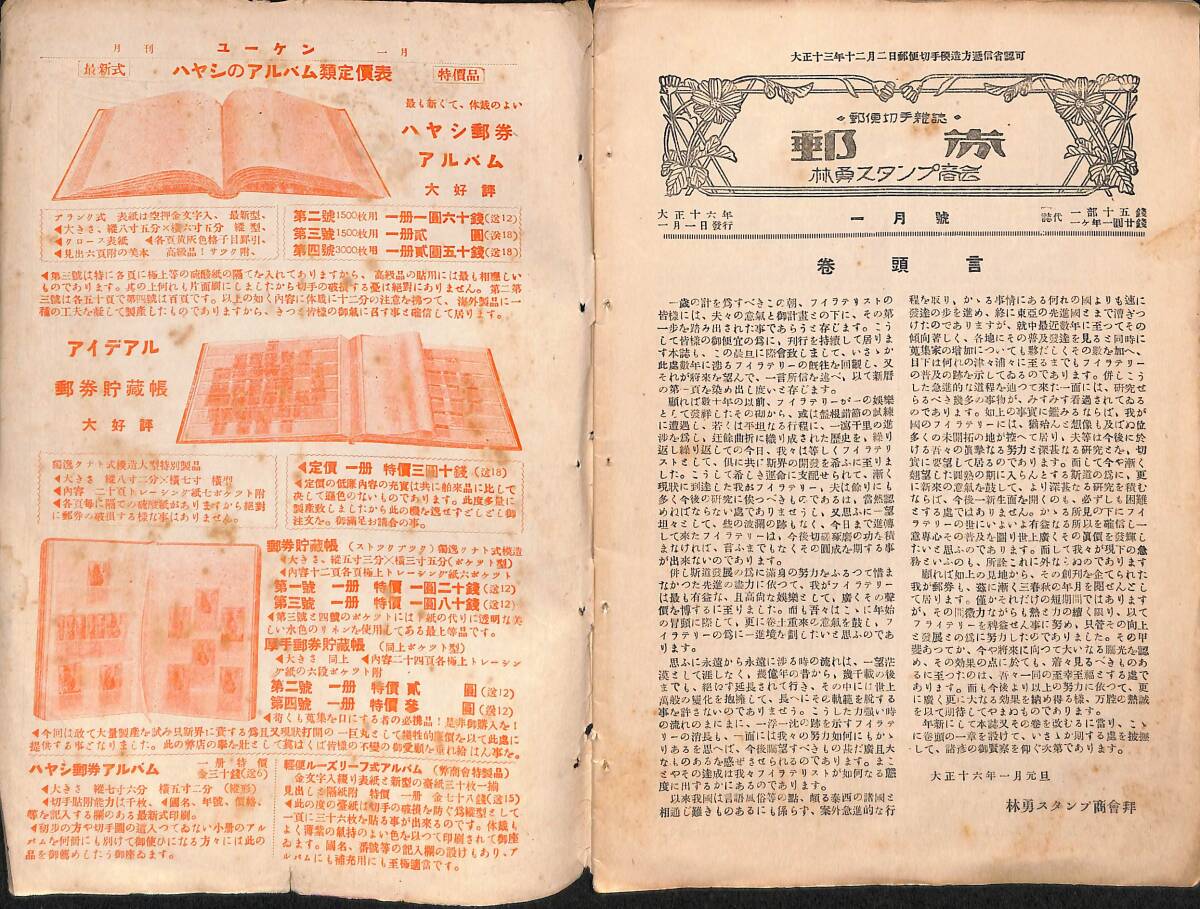 月刊 ユーケン 一月
最新式 ハヤシのアルバム類定價表 特價品
最も新くて、体裁のよい
ハヤシ郵券
アルバム
大好評
ブランク式 表紙は空押金文字入、最新型、
◀大きさ、縱八寸五分×橫六寸五分 縱型、
◀クロース表紙 ◀各頁黄灰色格子目罫引、
◀見出六頁附の美本 高級品!サツク附、
第二號1500枚用 一册一圓六十錢(送12)
第三號1500枚用 一册貳圓(送18)
第四號3000枚用 一册貳圓五十錢(送18)
◀第三號は特に各頁に極上等の硫酸紙の隔てを入れてありますから、高級品の貼用には最も相應しい
ものです。其の上何れも片面刷にしましたから切手の破損する憂は絕對にありません。第二第
三號は各五十頁で第四號は百頁です。以上の如く内容に体裁に十二分の注意を拂つて、海外製品に一
種の工夫を凝して製產したものでありますから、きつと皆様の御氣に召す事と確信して居ります。
アイデアル
郵券貯藏帳
大好評
獨逸クナト式模造大型特別製品
◀大きさ 縱八寸二分×橫七寸 橫型
◀内容 二十頁トレーシング紙七ポケツト附
◀各頁每に隔ての硫酸紙がありますから絕對
に郵券の破損する様な事はありません。
◀定價 一册 特價三圓十錢(送18)
◀定價の低廉内容の充實は共に舶來品に比して
决して遜色のないものであります。此度多量に
製產致しましたから此の機を逸せずどしどし御
注文を。御滿足お請合の事。
郵券貯藏帳(ストツクブツク)獨逸クナト式模造
◀大きさ、縱五寸三分×橫三寸五分(ポケツト型)
◀内容十二頁各頁極上トレーシング紙六ポケツト
第一號 一册 特價 一圓二十錢(送12)
第三號 一册 特價 一圓八十錢(送12)
◀第三號と四號のポケツトには下紙の代りに透明な美
しい水色のリネンを使用してある最上等品です。
厚手郵券貯藏帳(同上ポケツト型)
◀大きさ 同上 ◀内容二十四頁各極上トレーシン
グ紙の六段ポケツト附
第二號 一册 特價 貳 圓(送12)
第四號 一册 特價 參 圓(送12)
◀苟くも蒐集を口にする者の必携品!是非御購入を!
◀今回は敢て大量製產を試み只斯界に資する爲且又現狀打開の一巨丸として犧牲的廉價を以て此處に
提供する事となりました。此の弊店の擧を壯として冀はくば皆様の不變の御愛顧を垂れ給はん事を。
ハヤシ郵券アルバム 一册 特價 金三十錢(送6)
◀大きさ 縱七寸六分 橫五寸二分 (縱形)
◀切手貼附能力は千枚、◀國名、年號、價格、
等を記入する欄のある最新式印刷。
◀初步の方や切手圖の這入つてゐない小册のアル
バムを何册にも別けて御使ひになる方々には此の
品を御薦めしたう御座ゐます。
輕便ルーズリーフ式アルバム (弊商會特製品)
金文字入綴り表紙と新型の臺紙三十枚一揃
見出し、隔紙附 特價 一册 金七十八錢(送15)
◀此の度の臺紙は切手の破損を防ぐ爲橫型として
一頁に三十六枚を貼る事が出來るのです。体裁も
よく薄葉の氣持のよい色を以つて印刷されて御座
ゐます。國名、番號等の記入欄の設けもあり、ア
ルバムにも補充用にも至極適當です。
大正十三年十二月二日郵便切手模造方遞信省認可
郵便切手雜誌
郵券
林勇スタンプ商会
大正十六年
一月一日發行
一月號
誌代 一部十五錢
一ヶ年一圓廿錢
卷頭言
一歳の計を爲すべきこの朝、フイラテリストの
皆様には、夫々の意氣と御計畫との下に、その第
一步を踏み出された事であらうと存じます。こう
して皆様の御便宜の爲に、刊行を持續して居りま
す本誌も、この晨旦に際會致しまして、いさゝか
此處數年に渉るフイラテリーの旣往を回觀し、又
それが將來を望んで、一言所信を述べ、以て新曆
の第一頁を染め出し度いと存じます。
顧れば數十年の以前、フイラテリーが一の娯樂
として發祥したその初から、或は盤根錯節の試練
に遭遇し、若くは平坦なる行程に、一瀉千里の進
涉を爲し、迂餘曲折に織り成された歷史を、繰り
返し繰り返しての今日、我々は等しくフイラテリ
ストとして、俱に共に斯界の開發を希ふに至りま
した。こうして奇しき運命に支配せられて、漸く
現狀に到達した我がフイラテリー、夫は餘りにも
多く今後の研究に俟つべきものであるは、當然認
めねばならない處でありませうし、又思ふに一望
坦々として、些の波瀾の跡もなく、今日まで進轉
して來たフイラテリーは、今後切磋琢磨の功を積
まなければ、言ふまでもなくその圓成を期する事
が出來ないのであります。
併し斯道發展の爲に滿身の努力をふるつて惜ま
なかつた先進の盡力に依つて、我がフイラテリー
は最も有益な、且高尚な娯樂として、廣くその聲
價を博するに至りました。而も吾々はこゝに年始
の冒頭に際して、更に卷土重來の意氣を鼓し、フ
イラテリーの爲に一進境を劃したいと思ふのであ
ります。
思ふに永遠から永遠に渉る時の流れは、一望茫
漠として涯しなく、幾億年の昔から、幾千載の後
までも、絕えず延長されて行き、その中には世上
萬般の變化を抱擁して、長へにその軌範を脫する
事を許さないのであります。こうした力强い時
の流れのまにまに、一浮一沈の跡を示すフイラテ
リーの消長も、一面には我々の努力如何にもかゝ
りあるを思へば、今後願望すべきもの甚だ廣且大
なるものあるを感ぜさせられるのであります。まこ
とやその達成は我々フイラテリストが如何なる態
度に出るかにあるのであります。
以來我國は言語風俗等の點、頗る泰西の諸國と
相通じ難きものあるにも係らず、案外急進的な行
程を取り、かゝる事情にある何れの國よりも速に
發達の步を進め、終に東亞の先進國とまで漕ぎつ
けたのでありますが、就中最近數年に至つてその
傾向著しく、各地にその普及發達を見ると同時に
蒐集家の增加についても夥だしくその數を加へ、
目下は何れの津々浦々に至るまでもフイラテリー
の普及の跡を示してゐるのであります。併しこう
した急進的な道程を辿つて來た一面には、研究せ
らるべき幾多の事物が、みすみす看過されてゐる
のであります。如上の事實に鑑みるならば、我が
國のフイラテリーには、猶殆んと想像も及ばぬ位
多くの未開拓の地が控へて居り、夫等は今後に於
ける吾々の眞摯なる努力と深甚なる研究とを、切
實に要望して居るのであります。而して今や漸く
翹望した圓熟の期に入らんとする斯道の爲に、更
に新規の意氣を鼓して、より深甚なる研究を積む
ならば、今後一新生面を開くのも、必ずしも困難
とする處ではありません。かゝる所見の下にフイ
ラテリーの世にいよいよ有益なる所以を確信し一
意專心その普及を圖り世上廣くその眞價を發輝し
たいと思ふのであります。而して我々が現下の急
務といふのも、所詮これに外ならぬのであります
顧れば如上の見地から、その創刊を企てられた
我が郵券も、茲に漸く三春秋の年月を閲せんとし
て居ります。僅かそれだけの短期間ではあります
が、その間微力ながらも熱と力の續く限り、以て
フライテリーを裨益せん事に努め、只管その向上
と發展との爲に努力したのでありました。その甲
斐あつてか、今や將來に向つて大いなる曙光を認
め、その効果の点に於ても、蓋々見るべきものあ
るに至つたのは、吾々一同の至幸至福とする處で
あります。而も今後より以上の努力に依つて、更
に廣く更に大なる効果を納め得る様、万腔の熱誠
を以て期待してやまぬものであります。
年新にして本誌又その卷を改むるに當り、こゝ
に卷頭の一章を設けて、いさゝか期する處を披撫
して、諸彦の御賢察を仰ぐ次第であります。
大正十六年一月元旦
林勇スタンプ商會拜